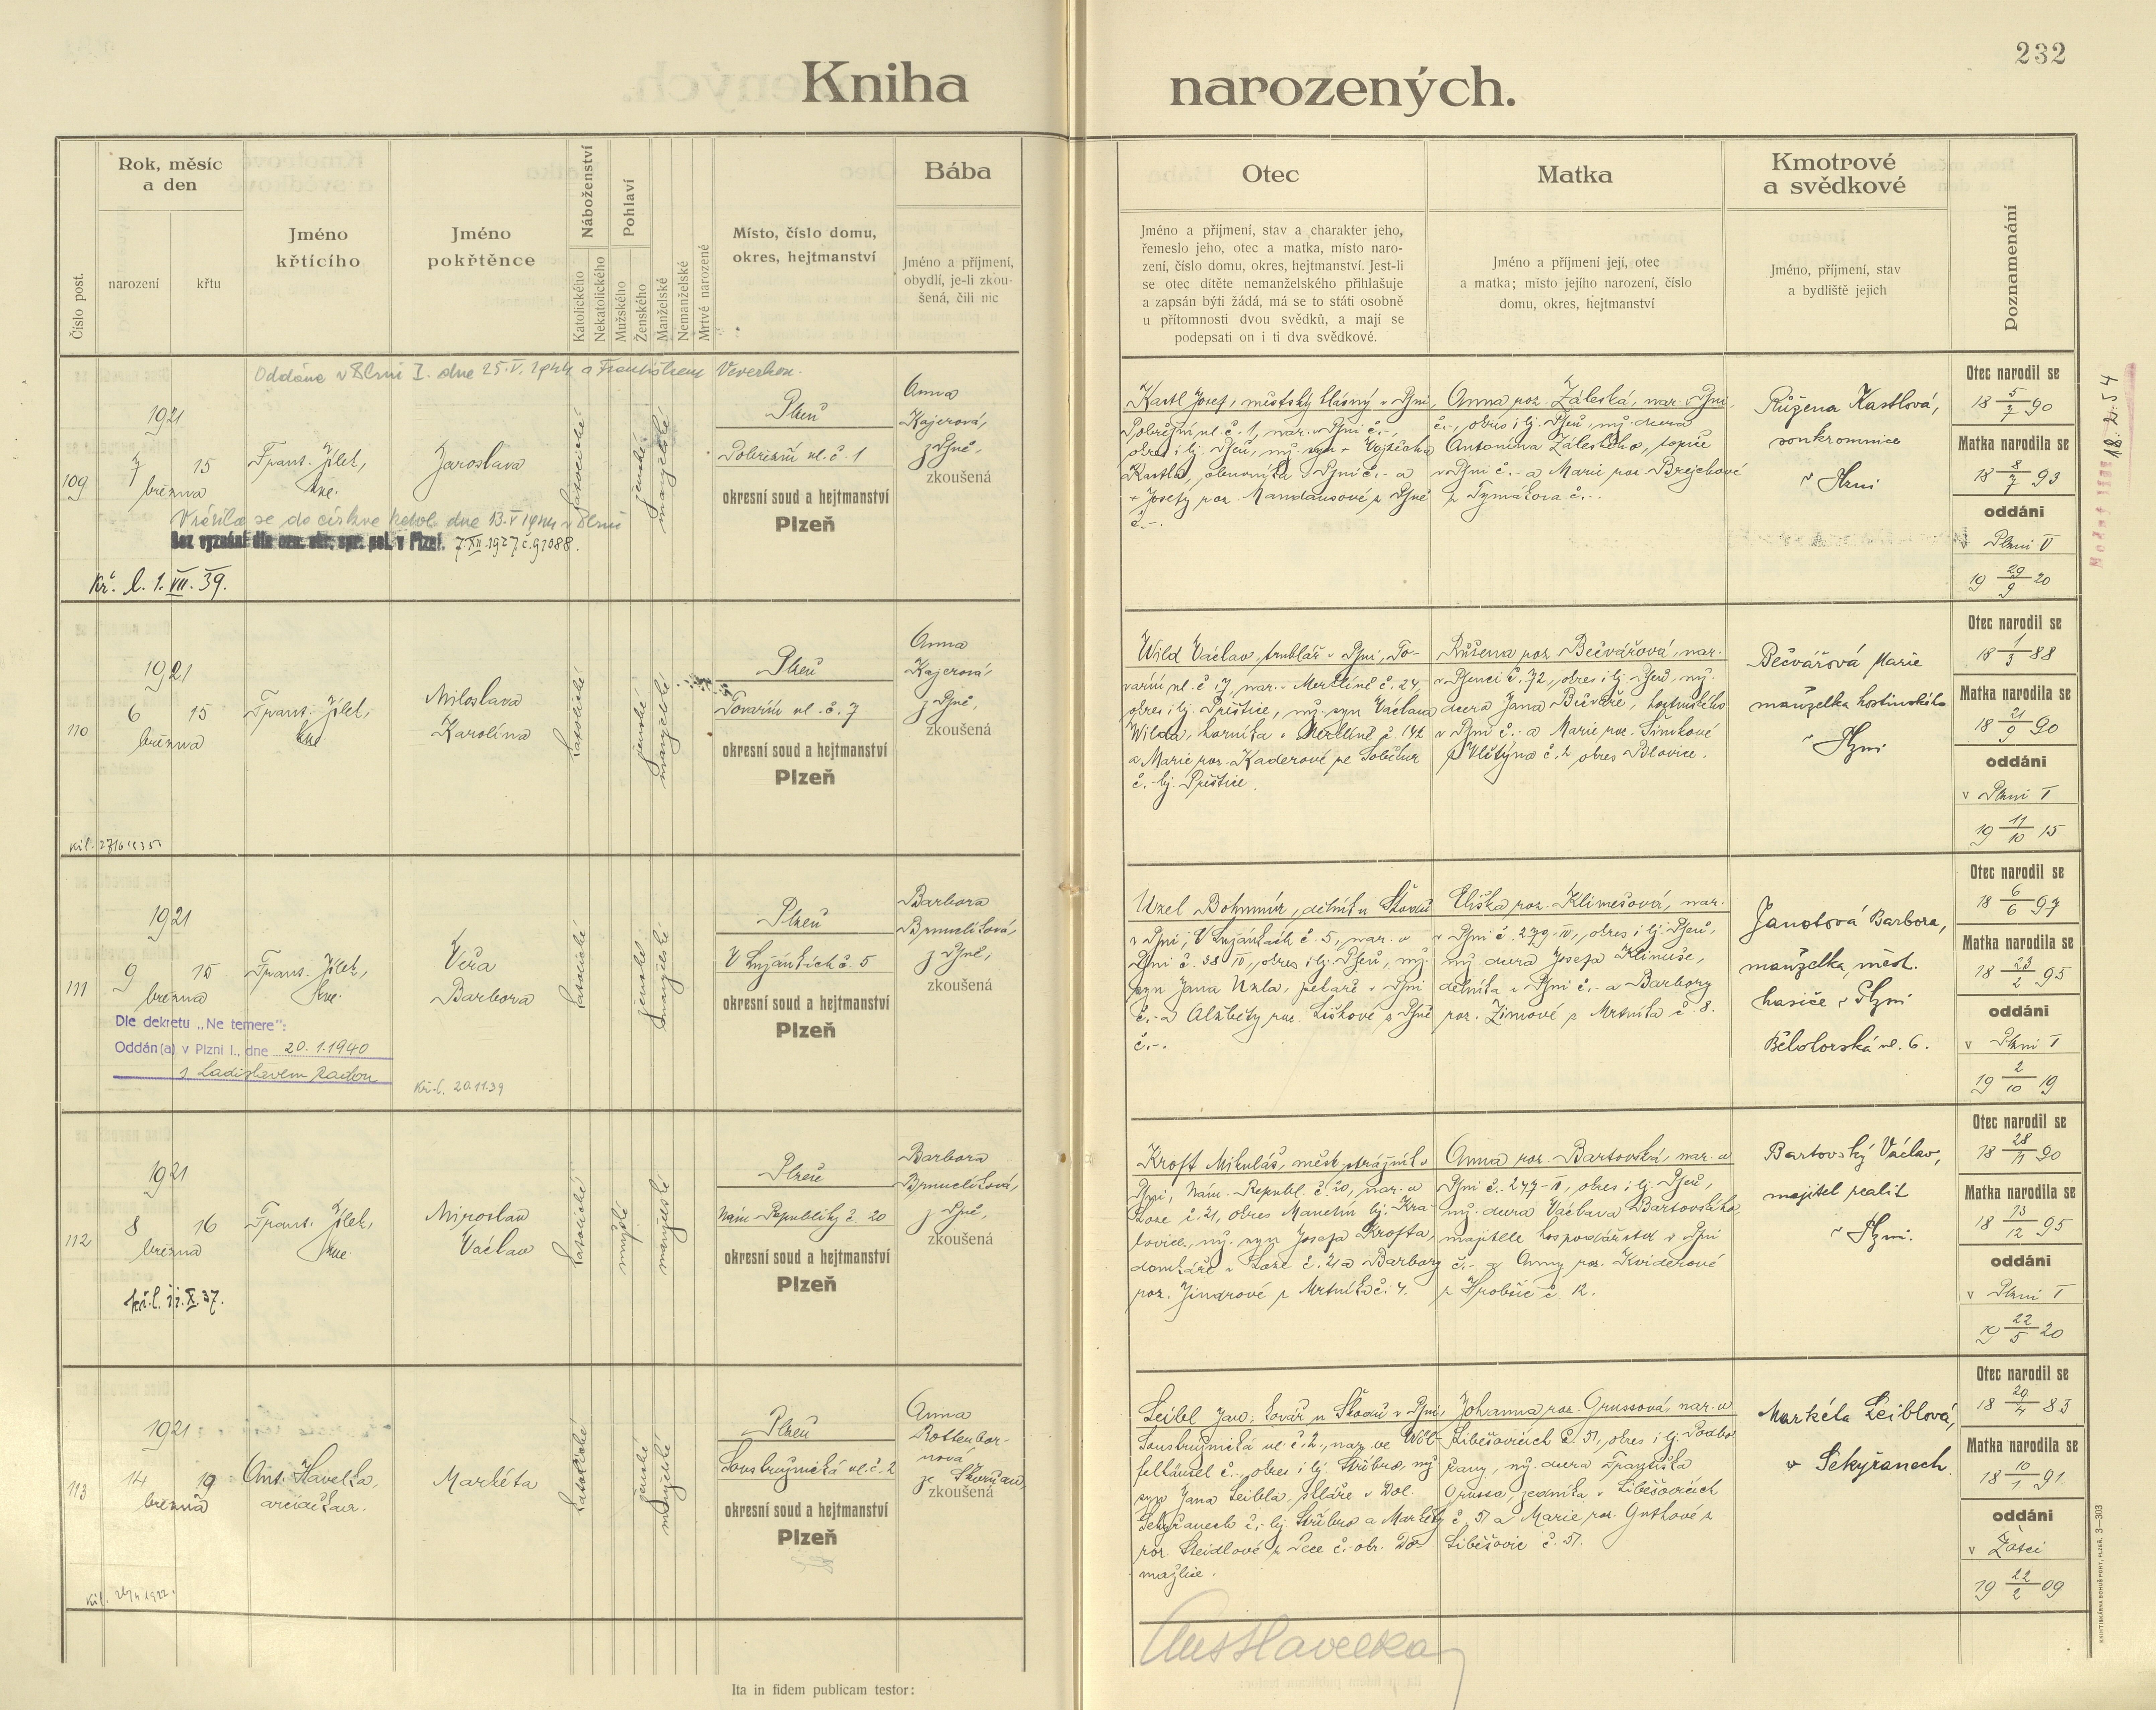 232
Kniha narozených.
Číslo post.
Rok, měsíc
a den
narození
křtu
Jméno
křtícího
Jméno
pokřtěnce
Náboženství
Katolického
Nekatolického
Pohlaví
Mužského
Ženského
Manželské
Nemanželské
Mrtvé narozené
Místo, číslo domu,
okres, hejtmanství
Bába
Jméno a příjmení,
obydlí, je-li zkou-
šená, čili nic
Otec
Jméno a příjmení, stav a charakter jeho,
řemeslo jeho, otec a matka, místo naro-
zení, číslo domu, okres, hejtmanství. Jest-li
se otec dítěte nemanželského přihlašuje
a zapsán býti žádá, má se to státi osobně
u přítomnosti dvou svědků, a mají se
podepsati on i ti dva svědkové.
Matka
Jméno a příjmení její, otec
a matka; místo jejího narození, číslo
domu, okres, hejtmanství
Kmotrové
a svědkové
Jméno, příjmení, stav
a bydliště jejich
Poznamenání
Oddána v Plzni I. dne 25.V.1944 s Františkem Veverkou.
109
1921
7 15
března
Frant. Jílek,
kne.
Jaroslava
katolické
ženské
manželské
Plzeň
Pobřežní ul. č. 1
okresní soud a hejtmanství
Plzeň
Anna
Kajerová,
z Plzně,
zkoušená
Vrátila se do církve katol. dne 13.V 1944 v Plzni
Bez vyznání dle ozn. okr. spr. pol. v Plzni. 7.XII.1927 č. 91088.
Kř. l. 1. VII. 39.
Kastl Josef, městský hlásný v Plzni,
Pobřežní ul. č. 1, nar. v Plzni č.-,
okres i hj. Plzeň, mž. syn Vojtěcha
Kastla, obuvníka v Plzni č.- a
Josefy roz. Mandausové z Plzně
č.-.
Anna roz. Záleská, nar. v Plzni
č.-, okres i hj. Plzeň, mž. dcera
Antonína Záleského, topiče
v Plzni č.- a Marie roz. Brejchové
z Tymákova č.-.
Růžena Kastlová,
soukromnice
v Plzni
Otec narodil se
18 5/7 90
Matka narodila se
18 8/7 93
oddáni
v Plzni V
19 29/9 20
18.2.54
110
1921
6 15
března
Frant. Jílek,
kne.
Miloslava
Karolína
katolické
ženské
manželské
Plzeň
Tovární ul. č. 7
okresní soud a hejtmanství
Plzeň
Anna
Kajerová,
z Plzně,
zkoušená
Wild Václav, truhlář v Plzni, To-
vární ul. č. 7, nar. v Merklíně č. 24,
okres i hj. Přeštice, mž. syn Václava
Wilda, horníka v Merklíně č. 142
a Marie roz. Kaderové ze Soběkur
č.- hj. Přeštice.
Růžena roz. Bečvářová, nar.
v Plzenci č. 72, okres i hj. Plzeň, mž.
dcera Jana Bečváře, hostinského
v Plzni č.- a Marie roz. Šimkové
z Vlčtýna č. 2 okres Blovice.
Bečvářová Marie
manželka hostinského
v Plzni
Otec narodil se
18 1/3 88
Matka narodila se
18 21/9 90
oddáni
v Plzni I
19 11/10 15
111
1921
9 15
března
Frant. Jílek,
kne.
Věra
Barbora
katolické
ženské
manželské
Plzeň
V Lužánkách č. 5
okresní soud a hejtmanství
Plzeň
Barbora
Brnulíková,
z Plzně,
zkoušená
Dle dekretu „Ne temere":
Oddán(a) v Plzni I., dne 20.1.1940
s Ladislavem Radou
Kř.l. 20.11.39
Uzel Bohumír, dělník u Škodů
v Plzni, V Lužánkách č. 5, nar. v
Plzni č. 38 IV, okres i hj. Plzeň, mž.
syn Jana Uzla, pekaře v Plzni
č.- a Alžběty roz. Liškové z Plzně
č.-.
Eliška roz. Klimešová, nar.
v Plzni č. 279-IV, okres i hj. Plzeň,
mž. dcera Josefa Klimeše,
dělníka v Plzni č.- a Barbory
roz. Zimové z Mrtníka č. 8.
Janotová Barbora,
manželka měst.
hasiče v Plzni
Bělohorská ul. 6.
Otec narodil se
18 6/6 97
Matka narodila se
18 23/2 95
oddáni
v Plzni I
19 2/10 19
112
1921
8 16
března
Frant. Jílek,
kne.
Miroslav
Václav
katolické
mužské
manželské
Plzeň
Nám. Republiky č. 20
okresní soud a hejtmanství
Plzeň
Barbora
Brnulíková,
z Plzně,
zkoušená
kř.l. 11.X.37.
Kroft Mikuláš, měst. strážník v
Plzni, Nám. Republ. č. 20, nar. v
Loze č. 21, okres Manětín hj. Kra-
lovice, mž. syn Josefa Krofta,
domkáře v Loze č. 21 a Barbory
roz. Jindrové z Mrtníka č. 4.
Anna roz. Bartovská, nar. v
Plzni č. 247-II, okres i hj. Plzeň,
mž. dcera Václava Bartovského,
majitele hospodářství v Plzni
č.- a Anny roz. Kviderové
z Hrobčic č. 12.
Bartovský Václav,
majitel realit
v Plzni.
Otec narodil se
18 28/11 90
Matka narodila se
18 13/12 95
oddáni
v Plzni I
19 22/5 20
113
1921
14 19
března
Ant. Havelka,
arciděkan.
Markéta
katolické
ženské
manželské
Plzeň
Soustružnická ul. č. 2
okresní soud a hejtmanství
Plzeň
Anna
Rottenbor-
nová
ze Skvrňan,
zkoušená
Leibl Jan, kovář u Škodů v Plzni,
Soustružnická ul. č. 2, nar. ve Wöl-
felhäusel č.-, okres i hj. Stříbro, mž.
syn Jana Leibla, skláře v Dol.
Sekyřanech č.- hj. Stříbro a Markéty
roz. Steidlové z Pece č.- okr. Do-
mažlice.
Johanna roz. Grussová nar. v
Liběšovicích č. 51, okres i hj. Podbo-
řany, mž. dcera Františka
Grussa, zedníka v Liběšovicích
č. 51 a Marie roz. Guthové z
Liběšovic č. 51.
Markéta Leiblová,
v Sekyřanech
Otec narodil se
18 20/4 83
Matka narodila se
18 10/1 91
oddáni
v Žatci
19 22/2 09
Ant Havelka
Ita in fidem publicam testor: